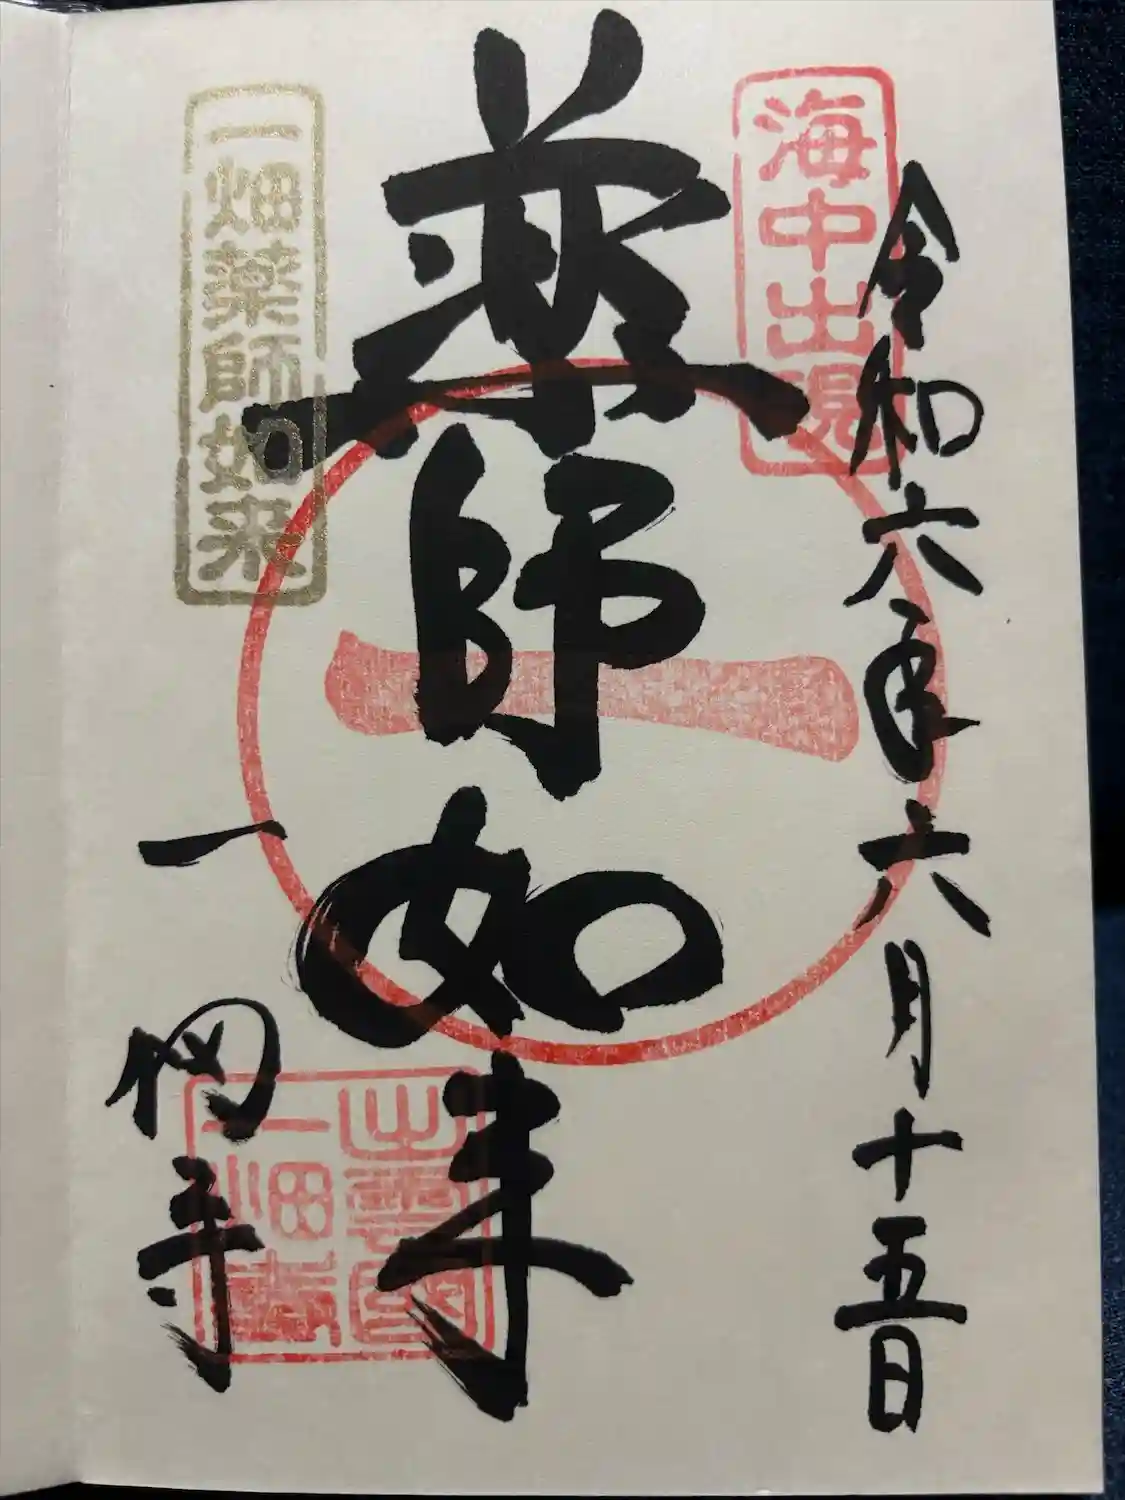 海中出現
令和六年六月十五日
薬師如来
一畑薬師如来
一畑寺
出雲國
一畑寺
一